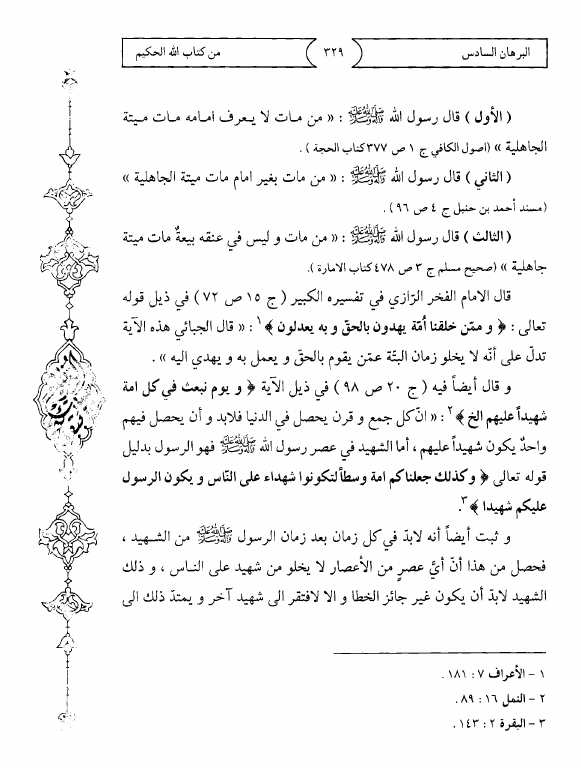 البرهان السادس
٣٢٩
من كتاب الله الحكيم
( الأول ) قال رسول الله ﷺ : « من مات لا يعرف امامه مات ميتة
الجاهلية » (اصول الكافي ج ١ ص ٣٧٧ كتاب الحجة ) .
( الثاني ) قال رسول الله ﷺ : « من مات بغير امام مات ميتة الجاهلية »
(مسند أحمد بن حنبل ج ٤ ص ٩٦ ) .
( الثالث ) قال رسول الله ﷺ : « من مات و ليس في عنقه بيعةٌ مات ميتة
جاهلية » (صحيح مسلم ج ٣ ص ٤٧٨ كتاب الامارة ).
قال الامام الفخر الرّازي في تفسيره الكبير ( ج ١٥ ص ٧٢ ) في ذيل قوله
تعالى : ﴿ و ممّن خلقنا أُمّة يهدون بالحقّ و به يعدلون ﴾١ : « قال الجبائي هذه الآية
تدلّ على أنّه لا يخلو زمان البتّة عمّن يقوم بالحقّ و يعمل به و يهدي اليه » .
و قال أيضاً فيه ( ج ٢٠ ص ٩٨ ) في ذيل الآية ﴿ و يوم نبعث في كل امة
شهيداً عليهم الخ ﴾٢ : « انّ كل جمع و قرن يحصل في الدنيا فلابد و أن يحصل فيهم
واحدٌ يكون شهيداً عليهم ، أما الشهيد في عصر رسول الله ﷺ فهو الرسول بدليل
قوله تعالى ﴿ وكذلك جعلناكم امة وسطاً لتكونوا شهداء على النّاس و يكون الرسول
عليكم شهيدا ﴾٣.
و ثبت أيضاً أنه لابدّ في كل زمان بعد زمان الرسول ﷺ من الشهيد ،
فحصل من هذا أنّ أيَّ عصرٍ من الأعصار لا يخلو من شهيد على الناس ، و ذلك
الشهيد لابدّ أن يكون غير جائز الخطا و الا لافتقر الى شهيد آخر و يمتدّ ذلك الى
١ - الأعراف ٧ : ١٨١ .
٢ - النمل ١٦ : ٨٩ .
٣ - البقرة ٢ : ١٤٣ .